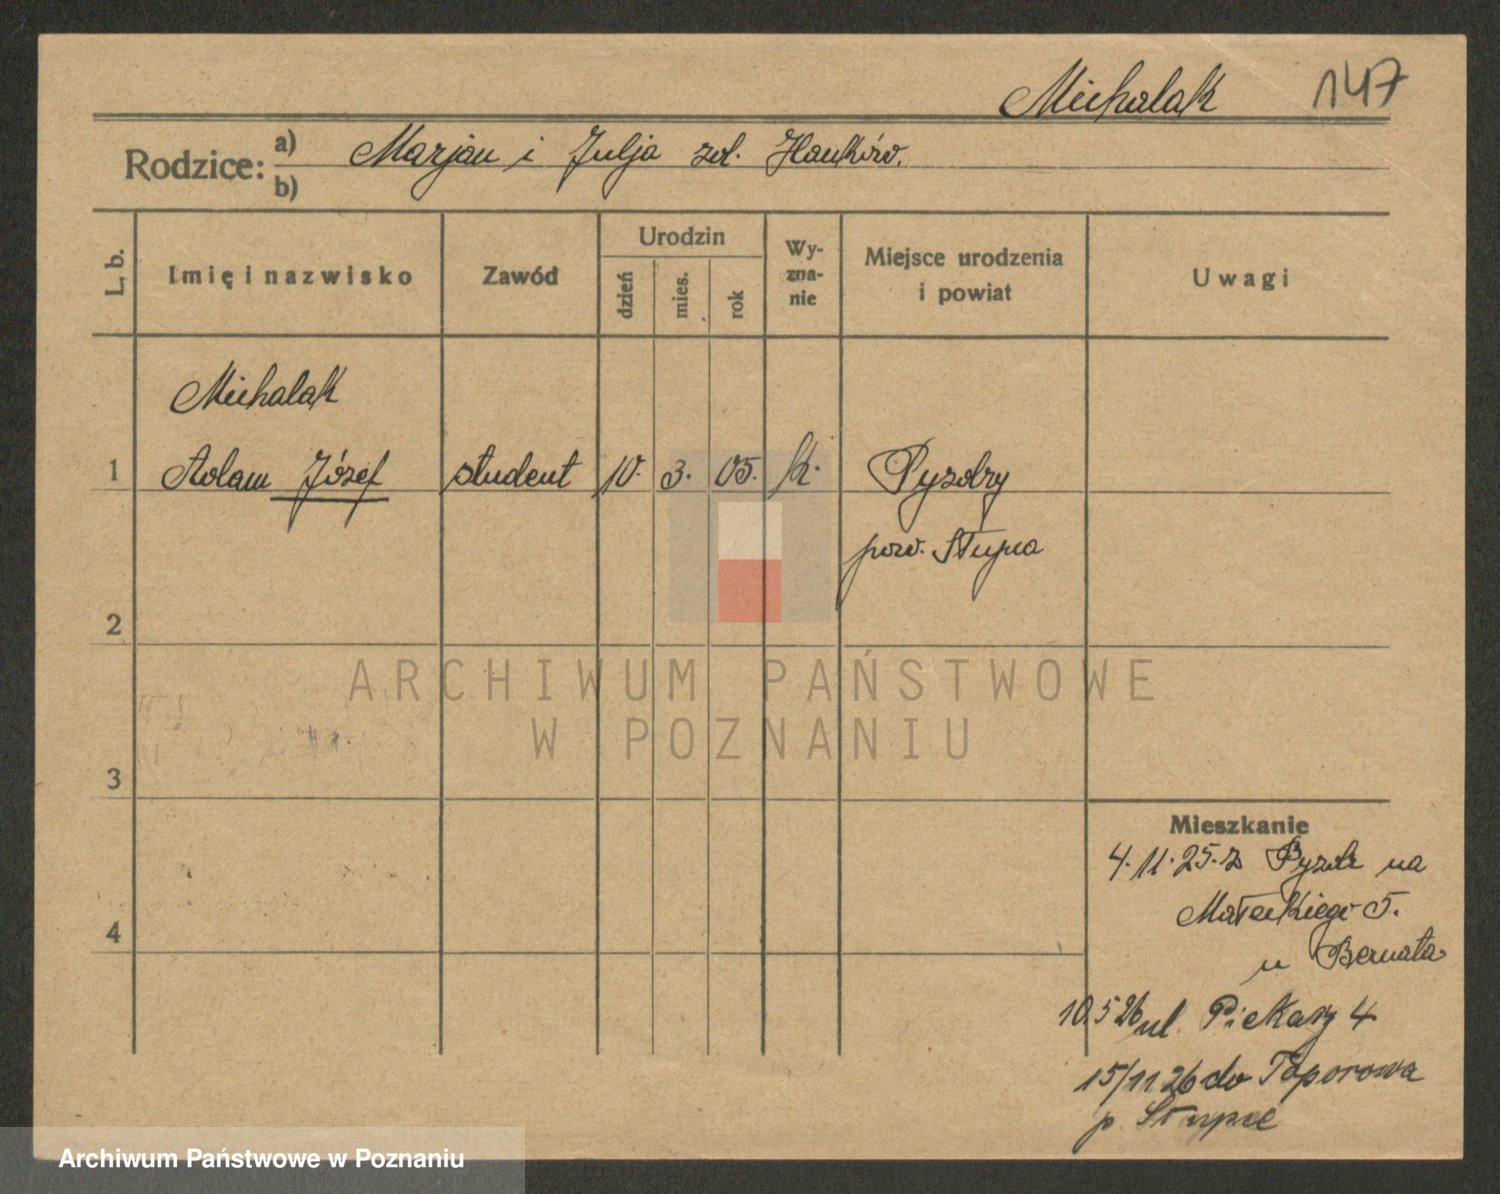 Michalak 147
Rodzice: a) Marjan i Julja zd. Hanków.
b)
L. b.
Imię i nazwisko
Zawód
Urodzin
dzień
mies.
rok
Wy-
zna-
nie
Miejsce urodzenia
i powiat
Uwagi
Michalak
1 Adam Józef student 10. 3. 05. k. Pyzdry
pow. Słupca
2
ARCHIWUM PAŃSTWOWE
W POZNANIU
3
Mieszkanie
4. 11. 25. z Pyzdr na
Małeckiego 5.
4
u Bernata
10.5 26 ul. Piekary 4
15/11 26 do Toporowa
p. Słupce
Archiwum Państwowe w Poznaniu